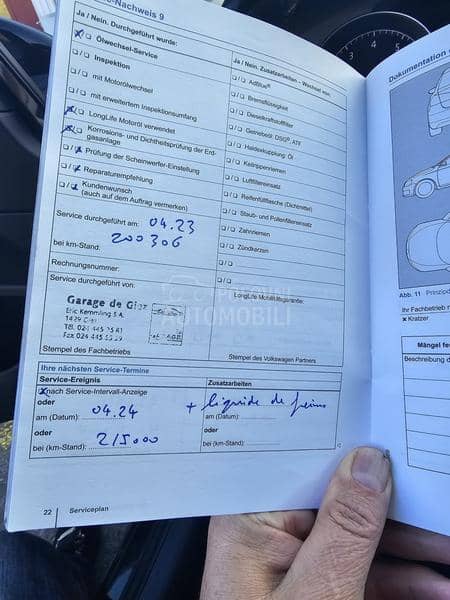 -Nachweis 9
Ja / Nein. Durchgeführt wurde:
☒/❏ Ölwechsel-Service
❏/❏ Inspektion
❏/❏ mit Motorölwechsel
❏/❏ mit erweitertem Inspektionsumfang
☒/❏ LongLife Motoröl verwendet
☒/❏ Korrosions- und Dichtheitsprüfung der Erd-
gasanlage
❏/☒ Prüfung der Scheinwerfer-Einstellung
❏/☒ Reparaturempfehlung
❏/☒ Kundenwunsch
(auch auf dem Auftrag vermerken)
Service durchgeführt am: 04.23
bei km-Stand: 200306
Rechnungsnummer:
Service durchgeführt von:
Garage de Gi
Eric Kemmling S.A.
Stempel des Fachbetriebs
Ja / Nein. Zusatzarbeiten – Wechsel von:
❏/❏ AdBlue®
❏/❏ Bremsflüssigkeit
❏/❏ Dieselkraftstofffilter
❏/❏ Getriebeöl: DSG®, ATF
❏/❏ Haldexkupplung: Öl
❏/❏ Keilrippenriemen
❏/❏ Luftfiltereinsatz
❏/❏ Reifenfüllflasche (Dichtmittel)
❏/❏ Staub- und Pollenfiltereinsatz
❏/❏ Zahnriemen
❏/❏ Zündkerzen
❏/❏
❏/❏
LongLife Mobilitätsgarantie:
Stempel des Volkswagen Partners
POLOVNI
AUTOMOBILI
Ihre nächsten Service-Termine
Service-Ereignis Zusatzarbeiten
☒ nach Service-Intervall-Anzeige
oder
am (Datum): 04.24
oder
bei (km-Stand): 215000
+ liquide de freins
am (Datum):
oder
bei (km-Stand):
22 Serviceplan
Dokumentation
Abb. 11
Ihr Fachbetrieb
× Kratzer
Mängel
Beschreibung
3